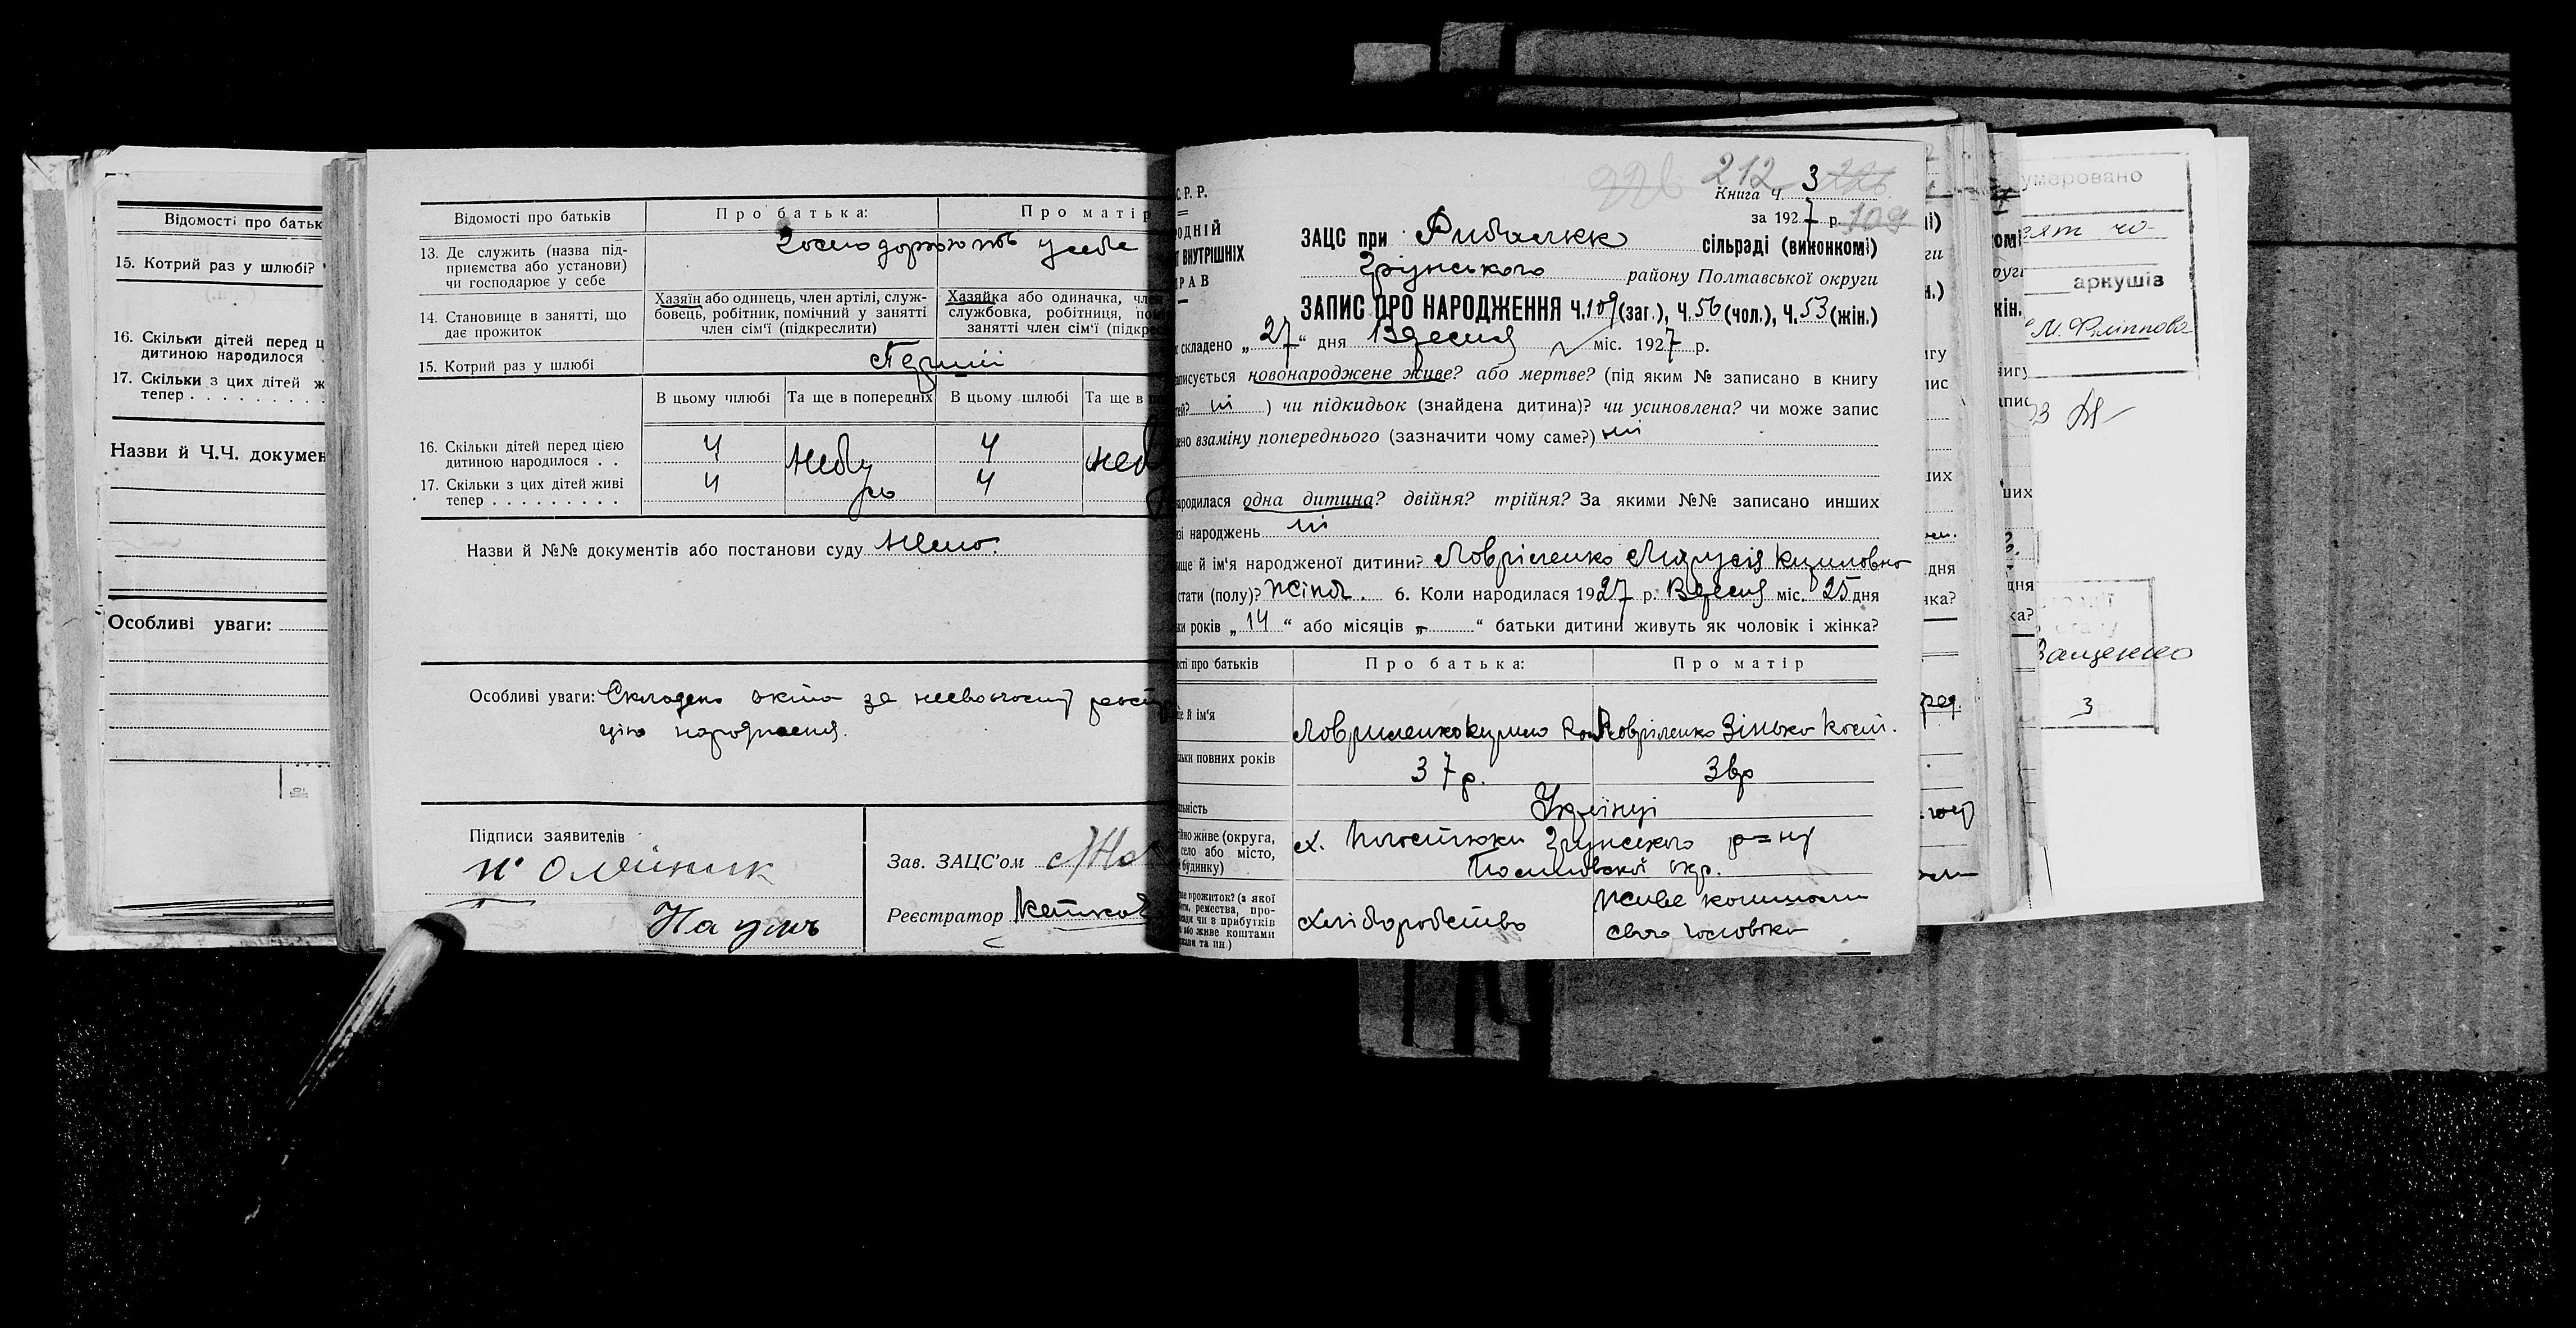 Відомості про батьк
15. Котрий раз у шлюбі?
16. Скільки дітей перед ц
дитиною народилося
17. Скільки з цих дітей ж
тепер . . . . . . . . .
Назви й Ч.Ч. докумен
Особливі уваги:
Відомості про батьків
Про батька:
Про матір
13. Де служить (назва під-
приємства або установи)
чи господарює у себе
Господорюють у себе
14. Становище в занятті, що
дає прожиток
Хазяїн або одинець, член артілі, служ-
бовець, робітник, помічний у занятті
член сім'ї (підкреслити)
Хазяйка або одиначка, член
службовка, робітниця, помі
занятті член сім'ї (підкрес
15. Котрий раз у шлюбі
Перший
В цьому шлюбі
Та ще в попередніх
В цьому шлюбі
Та ще в
16. Скільки дітей перед цією
дитиною народилося . .
4
4
17. Скільки з цих дітей живі
тепер . . . . . . . . .
4
4
Небу
ло
Неб
Назви й №№ документів або постанови суду Нема.
Особливі уваги: Складено акта за невчасну реєстр
цію народження.
Підписи заявителів
Олійник
Наумь
Зав. ЗАЦС'ом
Реєстратор
С. Р. Р.
ОДНІЙ
ВНУТРІШНІХ
РАВ
212
Книга Ч. 3
за 1927 р. 109
ЗАЦС при Рибальск сільраді (виконкомі)
Грунського району Полтавської округи
ЗАПИС ПРО НАРОДЖЕННЯ Ч. 109 (заг.), Ч. 56 (чол.), Ч. 53 (жін.)
складено „27" дня Вересня міс. 1927 р.
аписується новонароджене живе? або мертве? (під яким № записано в книгу
тей? ні ) чи підкидьок (знайдена дитина)? чи усиновлена? чи може запис
ено взаміну попереднього (зазначити чому саме?) ні
народилася одна дитина? двійня? трійня? За якими №№ записано инших
зі народжень ні
ище й ім'я народженої дитини? Ловріленко Маруся Кириловна
стати (полу)? Жіноч. 6. Коли народилася 1927 р. Вересня міс. 25 дня
ки років „14" або місяців „-" батьки дитини живуть як чоловік і жінка?
ості про батьків
Про батька:
Про матір
ще й ім'я
Ловриленко Кирило
Ловріленко Зінька Косм.
льки повних років
37 р.
36р
льність
Українці
ійно живе (округа,
село або місто,
будинку)
х. Грунського р=ну
Полтавської окр.
ає прожиток? (з якої
оти, ремества, про-
ади чи в прибутків
або живе коштами
жави та ин.)
Хліборобство
Живе коштами
свого чоловіка
умеровано
аркушів
М. Філіппова
Ващенко
3